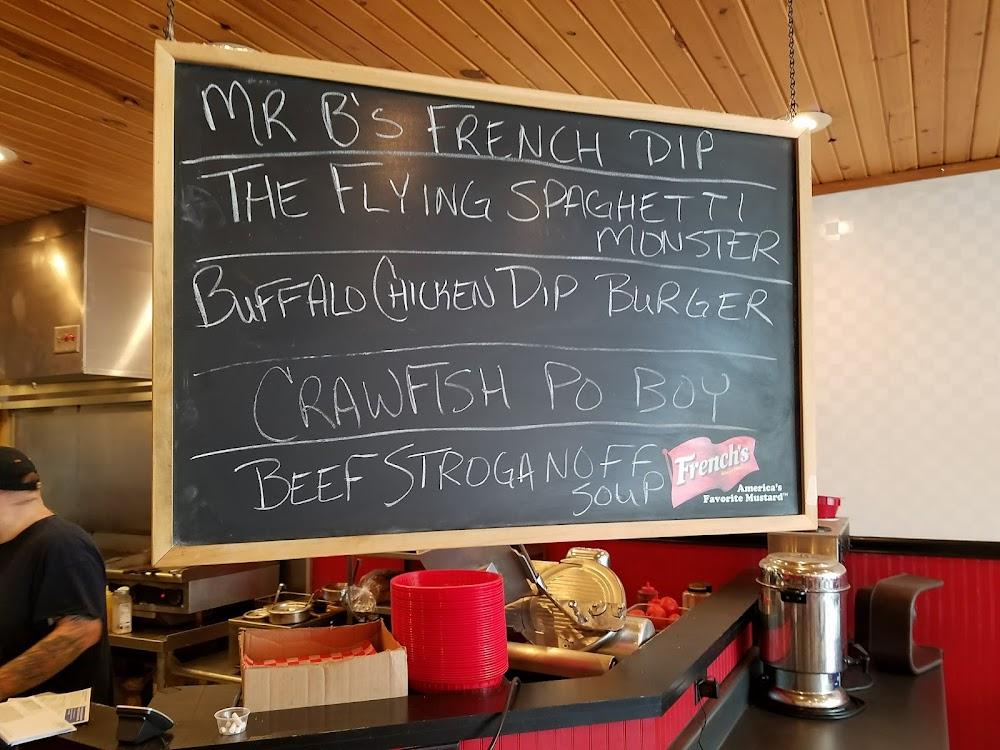 MR B's FRENCH DIP
THE FLYING SPAGHETTI
MONSTER
BUFFALO CHICKEN DIP BURGER
CRAWFISH PO BOY
BEEF STROGANOFF
SOUP
French's
America's
Favorite Mustard™